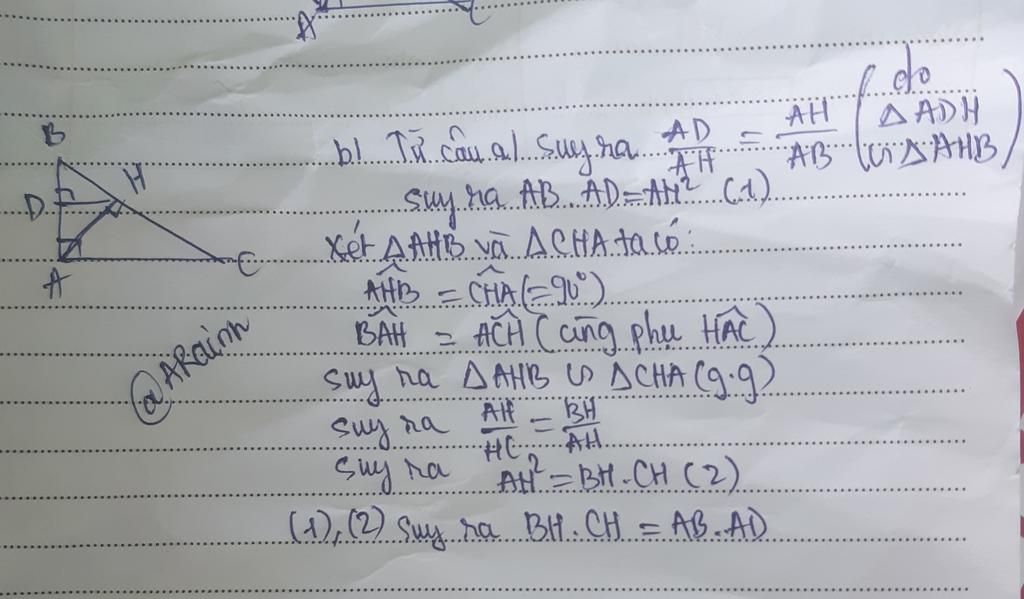 A C
B
D
H
A
C
@ARainn
b) Từ câu a) suy ra AD/AH = AH/AB (do ΔADH ∽ ΔAHB)
suy ra AB.AD=AH² (1)
xét ΔAHB và ΔCHA ta có:
AHB^ = CHA^ (=90°)
BAH^ = ACH^ (cùng phụ HAC^)
suy ra ΔAHB ∽ ΔCHA (g.g)
suy ra AH/HC = BH/AH
suy ra AH² = BH.CH (2)
(1),(2) suy ra BH.CH = AB.AD